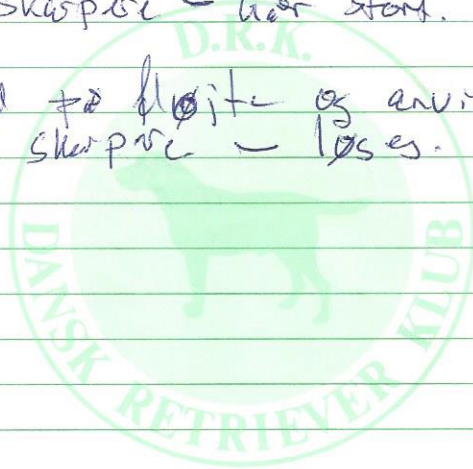 skarpere – har stort.
på fløjte og anvi
skarpre – løses.
D.R.K.
DANSK RETRIEVER KLUB